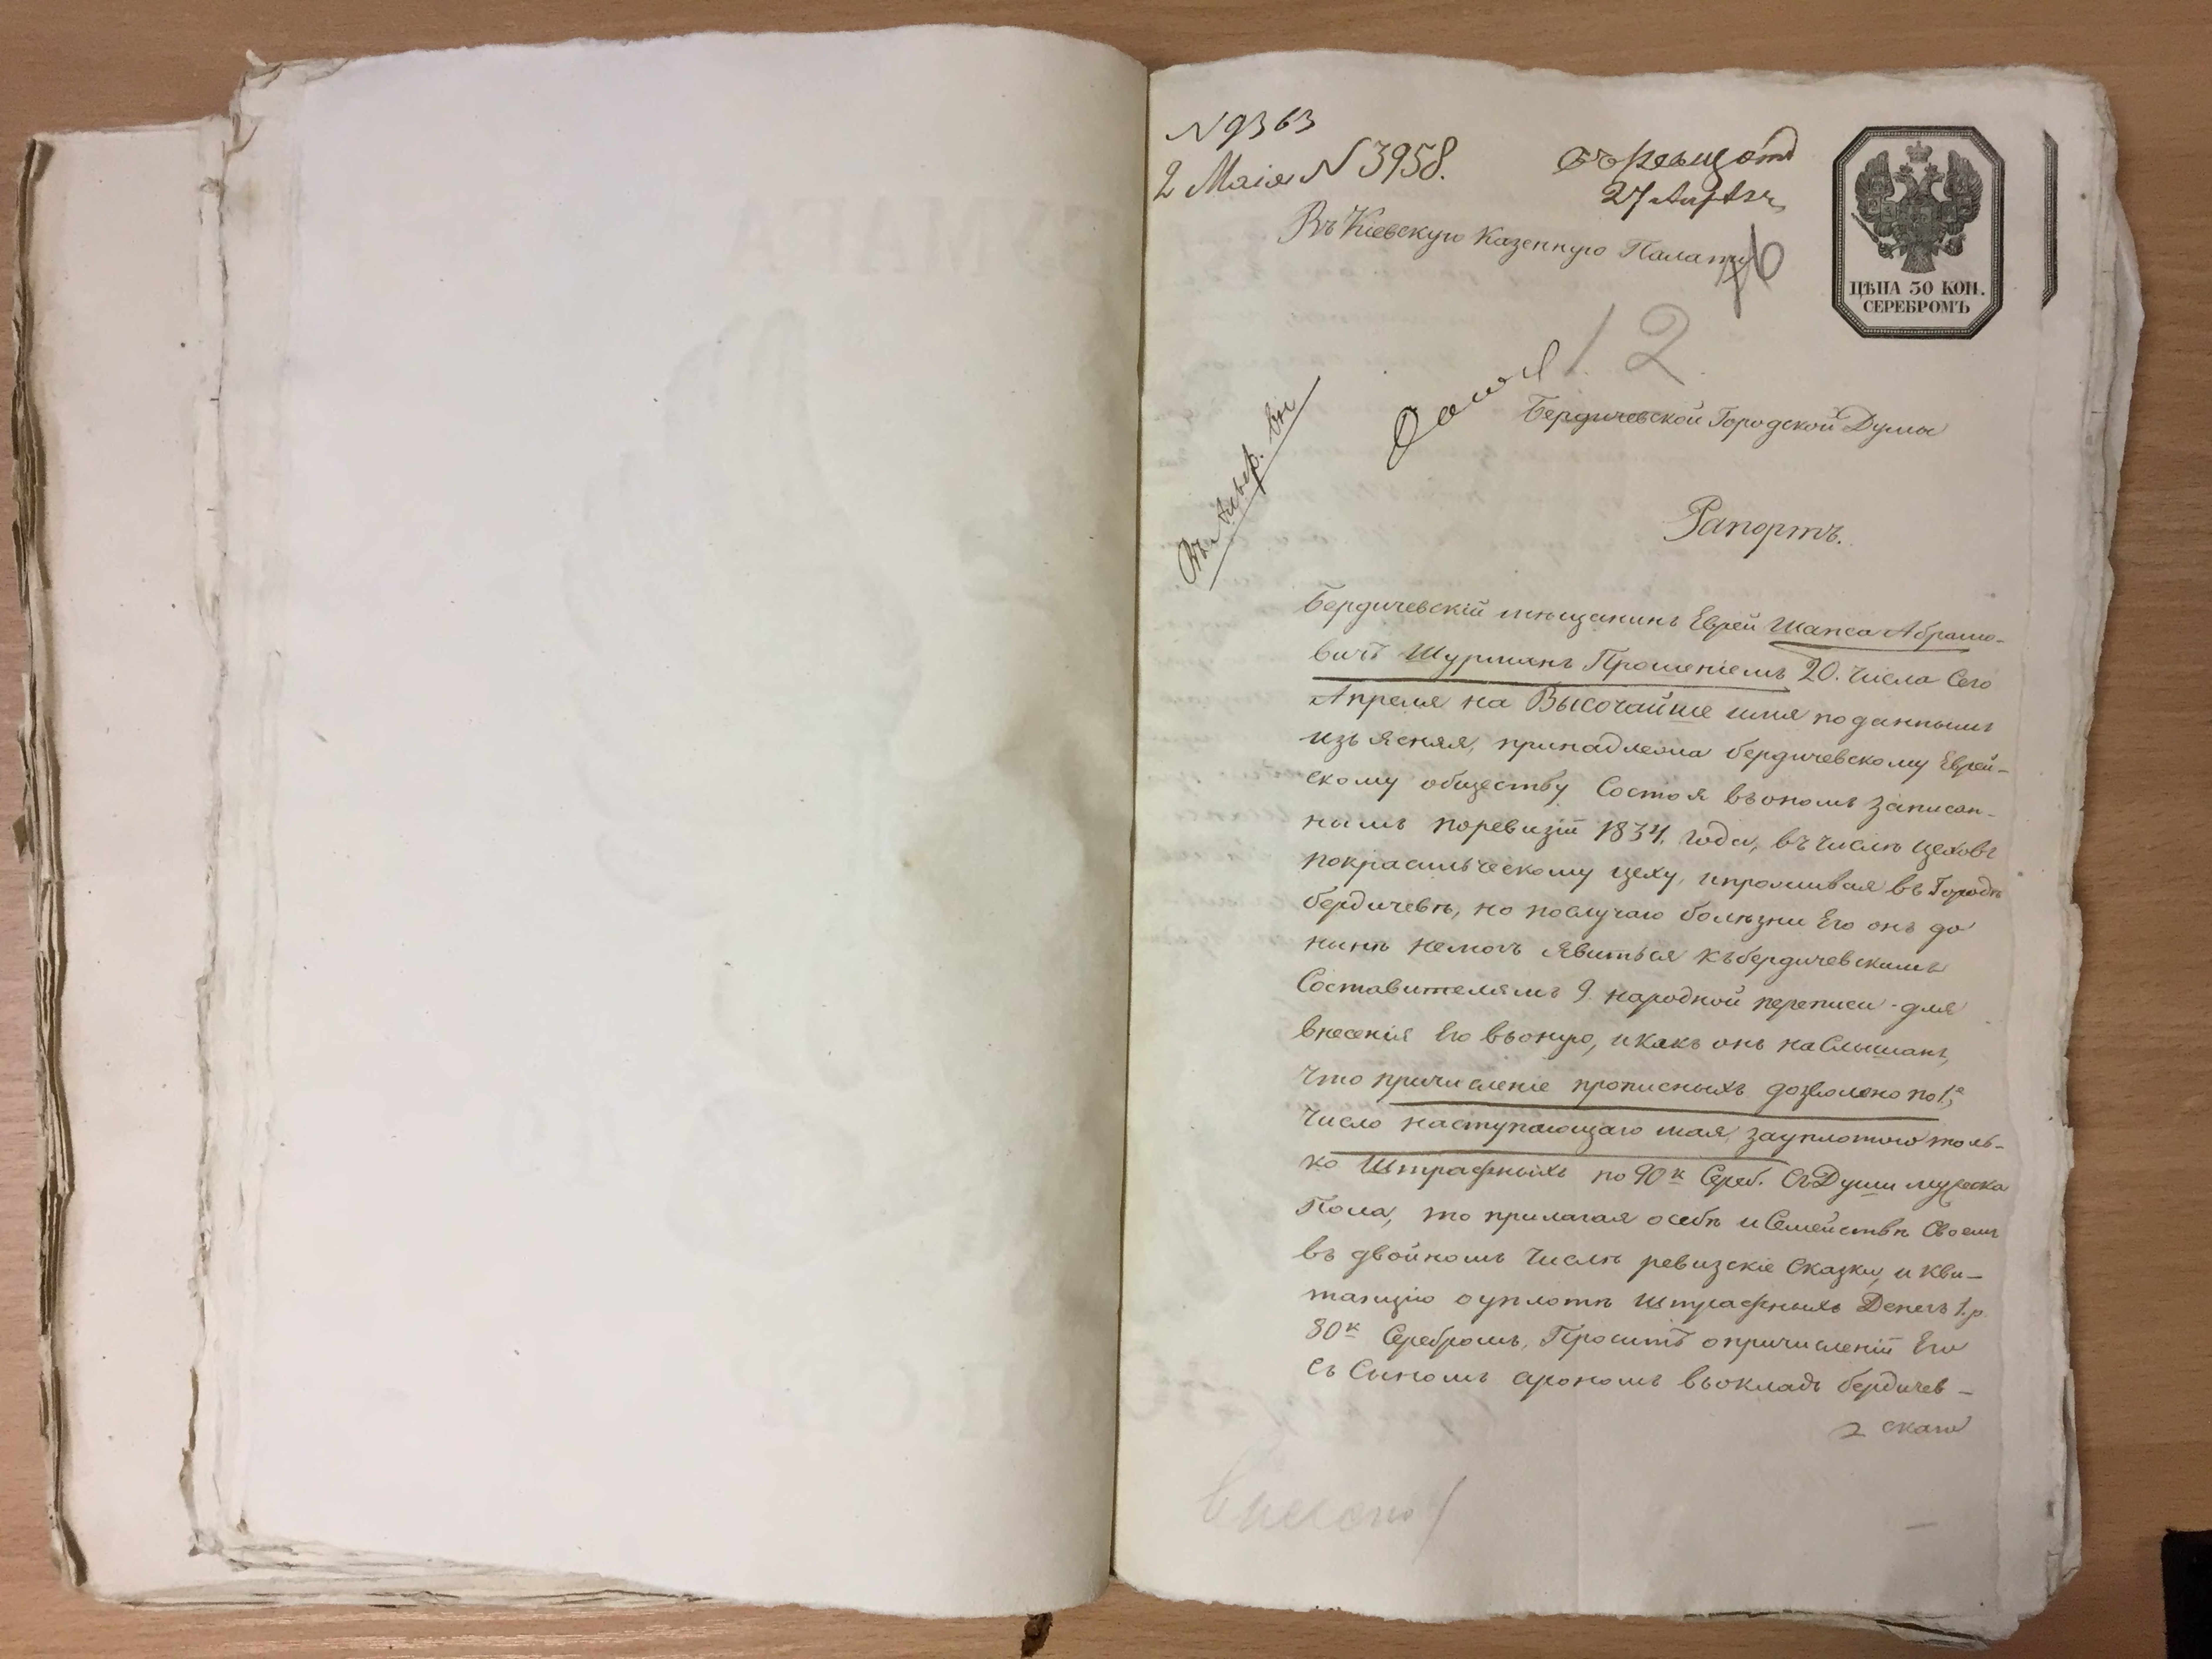 N 9363
2 Маія N 3958.
27 Апрѣля
Въ Кіевскую Казенную Палату
ЦѢНА 30 КОП.
СЕРЕБРОМЪ
12
Бердичевской Городской Думы
Рапортъ.
Бердичевскій мѣщанинъ Еврей Шапса Абрамо-
вичъ Шурманъ Прошеніемъ 20. числа Сего
Апреля на Высочайше имя поданнымъ
изъясняя, принадлежа бердичевскому Еврей-
скому обществу Состоя въономъ записан-
нымъ поревизіи 1834. года, въ числѣ цеховъ
покрасильческому цеху, ипроживая въ Городѣ
бердичевѣ, но послучаю болѣзни Его онъ до
нынѣ немогъ явиться къбердичевскимъ
Составителямъ 9. народной переписи для
внесенія Его въоную, икакъ онъ наслышанъ,
что причисленіе прописныхъ дозволено по 1е
число наступающаго мая, зауплатою толь-
ко Штрафныхъ по 90к Сереб. Съ Души мужеска
Пола, то прилагая осебѣ и Семействѣ Своемъ
въ двойномъ числѣ ревизскіе Сказки, и кви-
танцію оуплатѣ штрафныхъ Денегъ 1.р
80к Серебромъ, Проситъ опричисленіи Его
съ Сыномъ арономъ въокладъ бердичев-
скаго